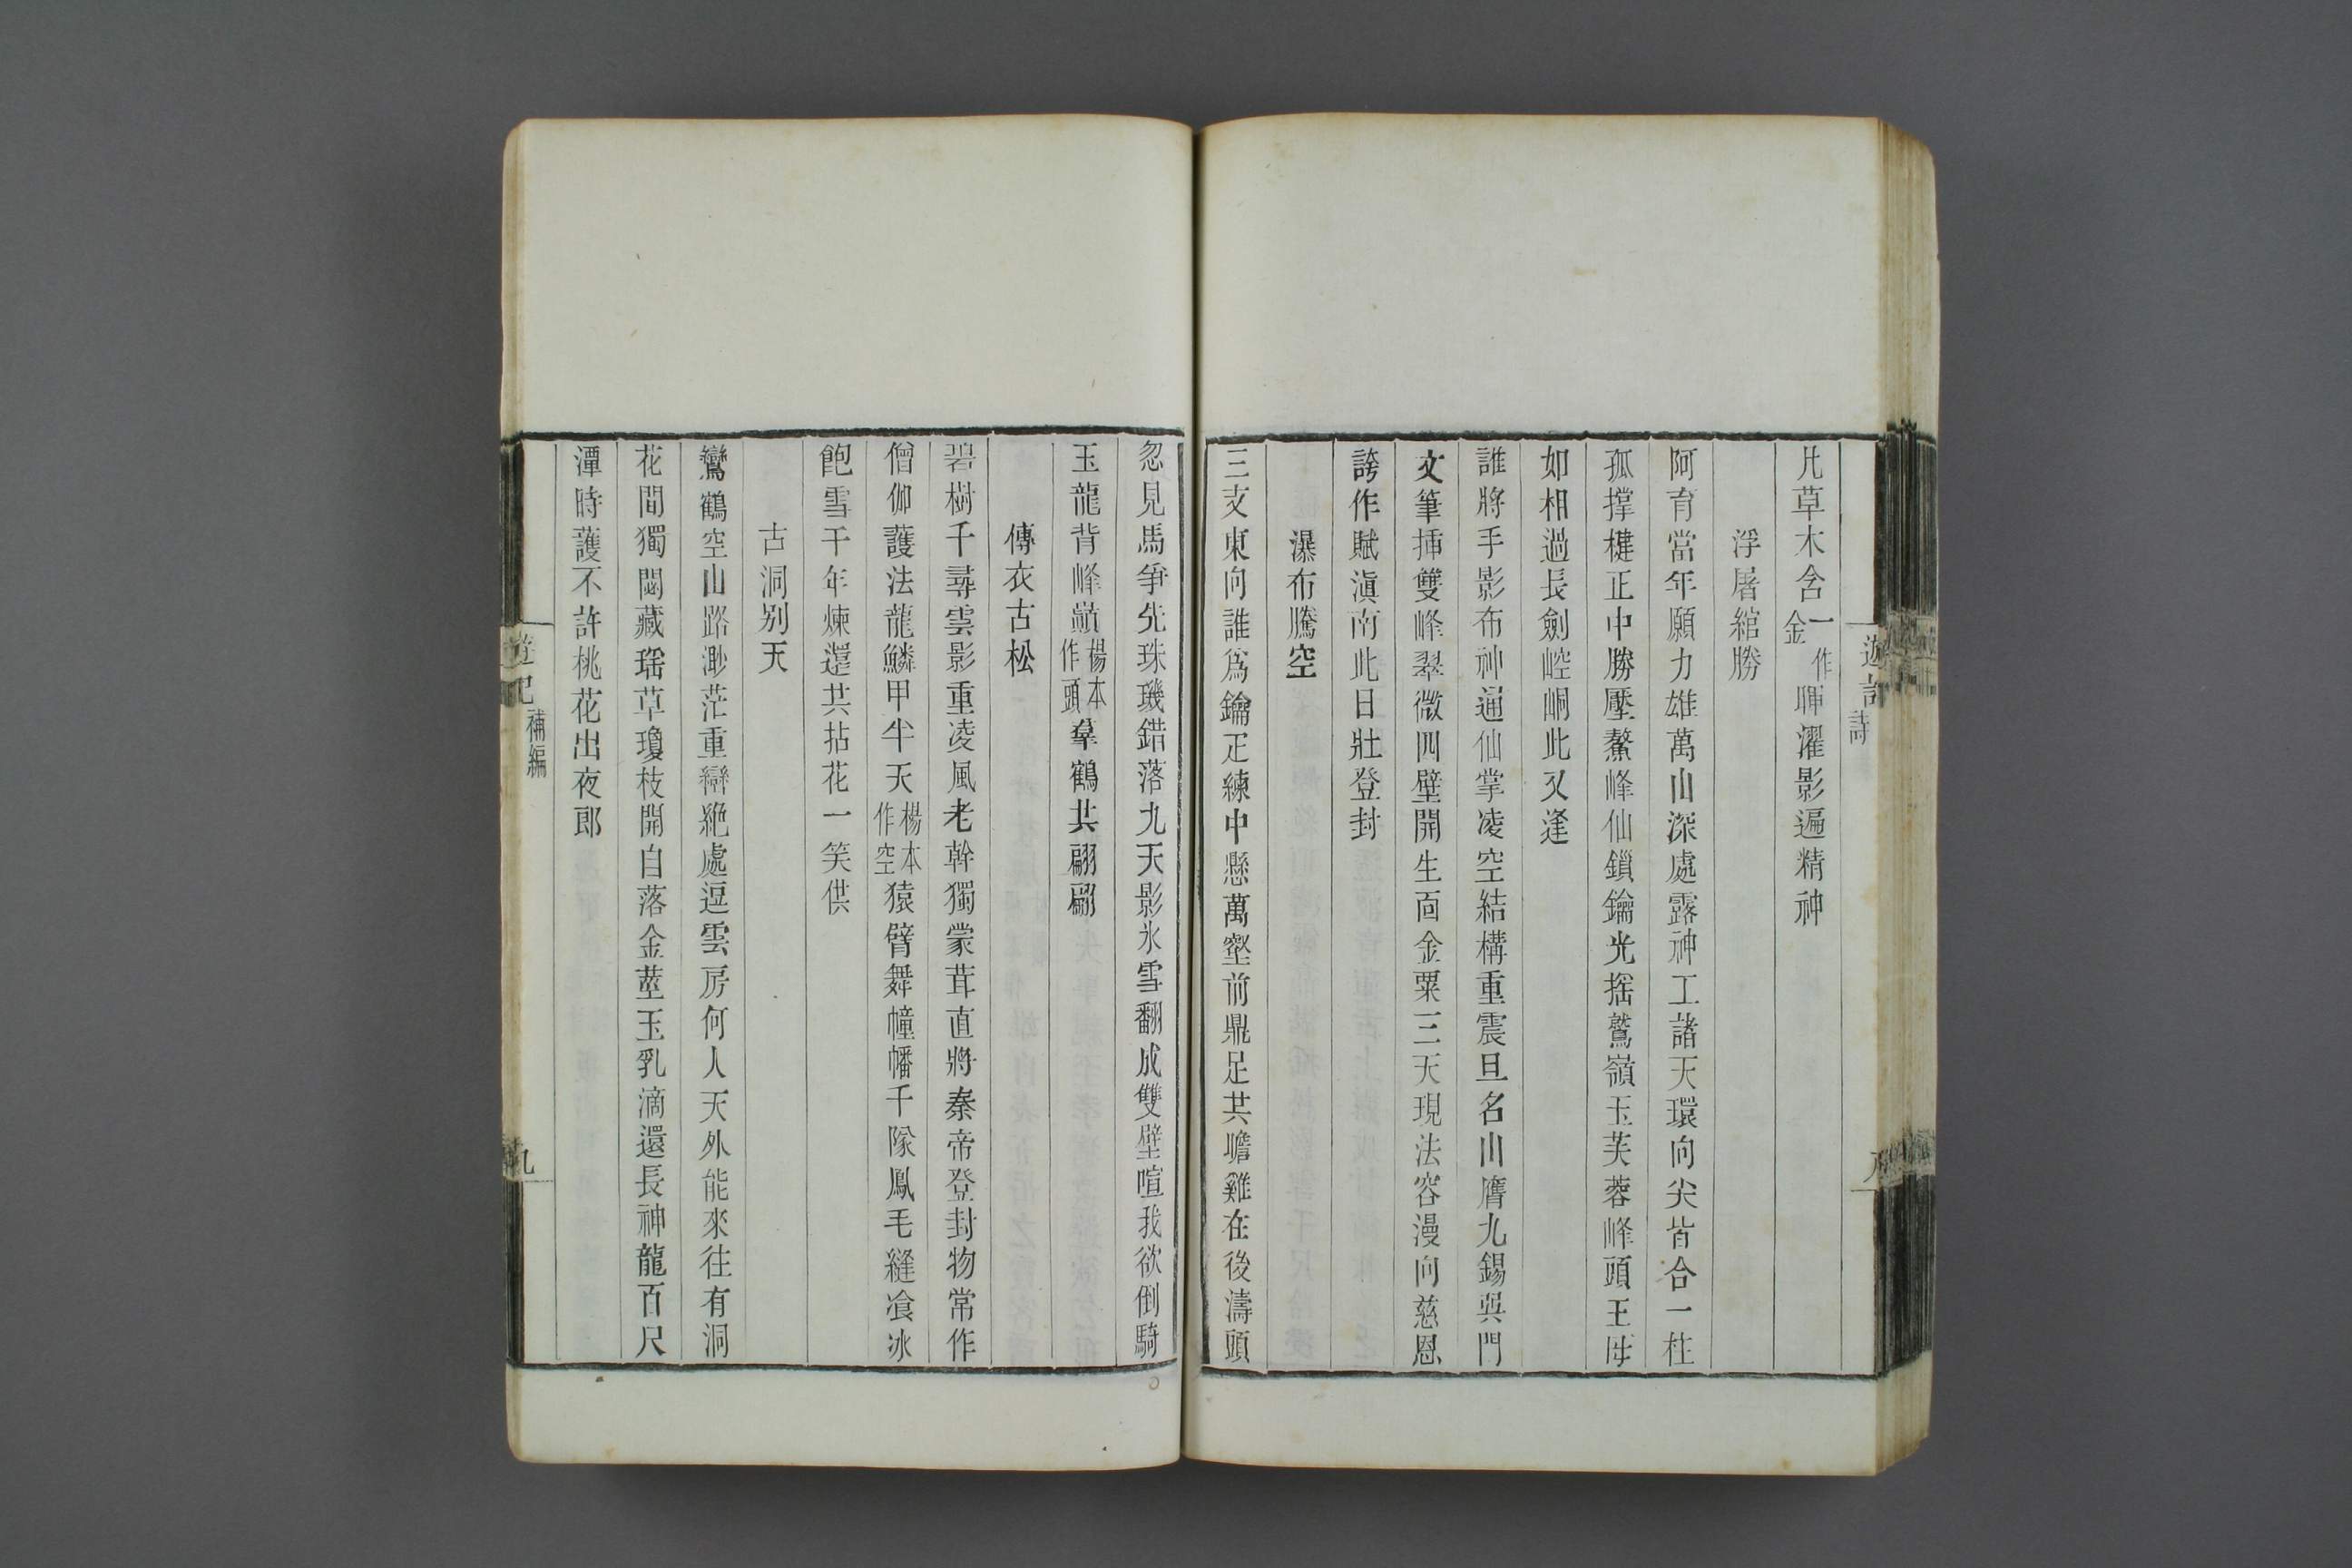 凡草木含一作金暉濯影遍精神
浮屠綰勝
阿育當年願力雄萬山深處露神工諸天環向尖皆合一柱
孤撐楗正中勝壓鰲峰仙鎖鑰光搖鷲嶺玉芙蓉峰頭王母
如相過長劍崆峒此又逢
誰將手影布神通仙掌凌空結構重震旦名山膺九錫吳門
文筆揷雙峰翠微四壁開生面金粟三天現法容漫向慈恩
誇作賦滇南此日壯登封
瀑布騰空
三支東向誰爲鑰疋練中懸萬壑前鼎足共瞻雞在後濤頭
忽見馬爭先珠璣錯落九天影氷雪翻成雙壁喧我欲倒騎
玉龍背峰巔楊本作頭羣鶴共翩翩
傳衣古松
碧樹千尋雲影重凌風老幹獨蒙茸直將秦帝登封物常作
僧伽護法龍鱗甲半天楊本作空猿臂舞幢幡千隊鳳毛縫飡冰
飽雪千年煉還共拈花一笑供
古洞别天
鸞鶴空山路渺茫重巒絶處逗雲房何人天外能來往有洞
花間獨閟藏瑶草瓊枝開自落金莖玉乳滴還長神龍百尺
潭時護不許桃花出夜郎
遊記 補編
九